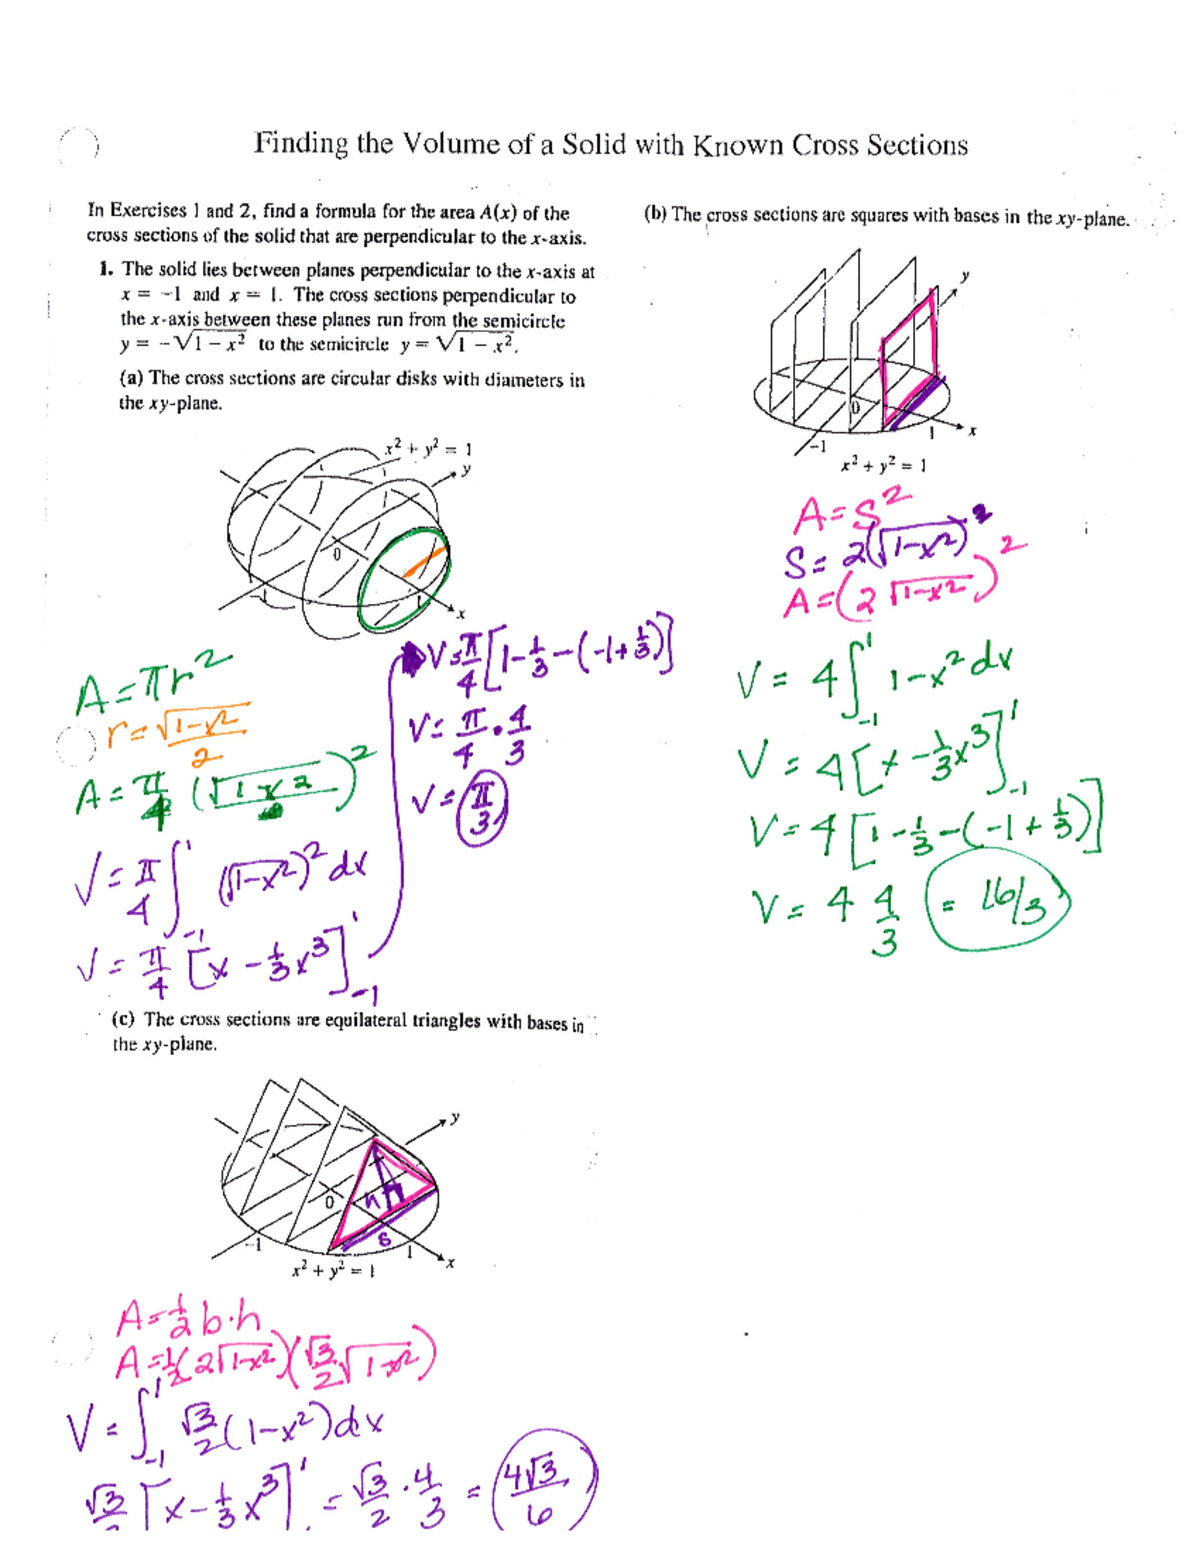 Finding the Volume of a Solid with Known Cross Sections
In Exercises 1 and 2, find a formula for the area A(x) of the
cross sections of the solid that are perpendicular to the x-axis.
1. The solid lies between planes perpendicular to the x-axis at
x = -1 and x = 1. The cross sections perpendicular to
the x-axis between these planes run from the semicircle
y = -√1 - x² to the semicircle y = √1 - x².
(a) The cross sections are circular disks with diameters in
the xy-plane.
x² + y² = 1
y
0
-1
1
x
A=πr²
r=√1-x²/2
A=π/4 (√1-x²)²
V=π/4∫₋₁¹ (√1-x²)² dx
V=π/4 [x-1/3x³]₋₁¹
V=π/4[1-1/3-(-1+1/3)]
V=π/4·4/3
V=π/3
(b) The cross sections are squares with bases in the xy-plane.
y
0
1
x
-1
x² + y² = 1
A=s²
S=2(√1-x²)²
A=(2√1-x²)²
V=4∫₋₁¹ 1-x² dx
V=4[x-1/3x³]₋₁¹
V=4[1-1/3-(-1+1/3)]
V=4 4/3 = 16/3
(c) The cross sections are equilateral triangles with bases in
the xy-plane.
y
0
h
s
-1
1
x
x² + y² = 1
A=1/2 b·h
A=1/2(2√1-x²)(√3/2√1-x²)
V=∫₋₁¹ √3/2(1-x²)dx
√3/2 [x-1/3x³]¹ = √3/2·4/3 = 4√3/6